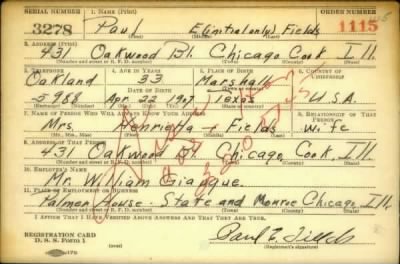 SERIAL NUMBER 1. NAME (Print) ORDER NUMBER
3278 Paul E(initial only) Fields 1115
2. ADDRESS (Print)
431 Oakwood Bl. Chicago Cook Ill.
3. TELEPHONE 4. AGE IN YEARS 5. PLACE OF BIRTH 6. COUNTRY OF CITIZENSHIP
Oakland 33 Marshall
DATE OF BIRTH
5988 Apr 22 1907 Texas U.S.A.
7. NAME OF PERSON WHO WILL ALWAYS KNOW YOUR ADDRESS 8. RELATIONSHIP OF THAT PERSON
Mrs Henrietta Fields wife
9. ADDRESS OF THAT PERSON
431 Oakwood Bl. Chicago Cook, Ill.
10. EMPLOYER'S NAME
Mr. William Giaque.
11. PLACE OF EMPLOYMENT OR BUSINESS
Palmer House - State and Monroe Chicago Ill.
I AFFIRM THAT I HAVE VERIFIED ABOVE ANSWERS AND THAT THEY ARE TRUE.
REGISTRATION CARD
D. S. S. FORM 1
Paul E. Fields